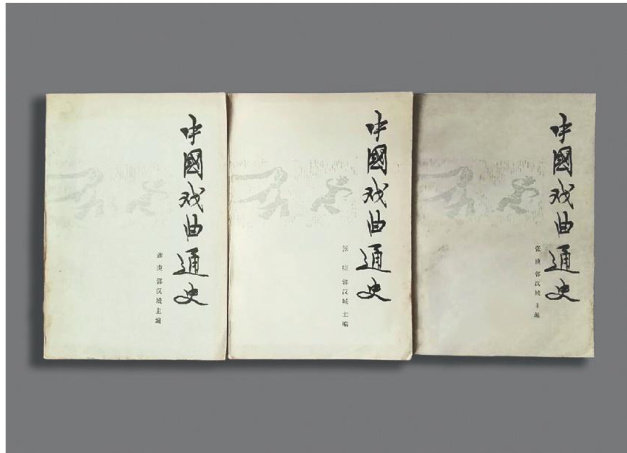 中國戏曲通史
张庚 郭汉城 主编
中國戏曲通史
张庚 郭汉城 主编
中國戏曲通史
张庚 郭汉城 主编